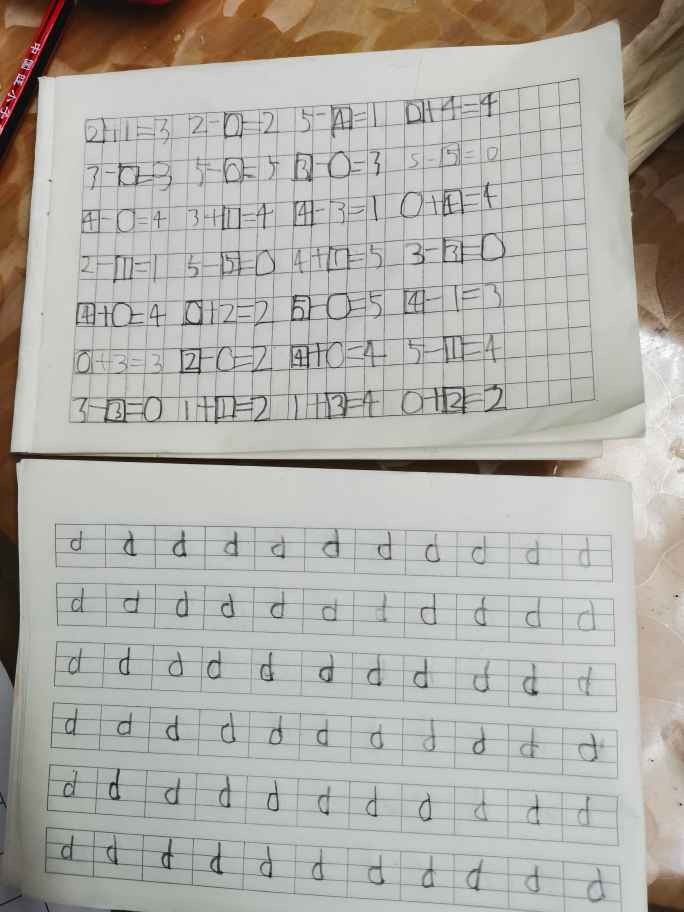 中国旺小子
[2]+1=3 2-[0]=2 5-[4]=1 [0]+4=4
3-[0]=3 5-[0]=5 [3]-0=3 5-[5]=0
[4]-0=4 3+[1]=4 [4]-3=1 0+[4]=4
2-[1]=1 5-[5]=0 4+[1]=5 3-[3]=0
[4]+0=4 [0]+2=2 [5]-0=5 [4]-1=3
0+3=3 [2]-0=2 [4]+0=4 5-[1]=4
3-[3]=0 1+[1]=2 1+[3]=4 0+[2]=2
d d d d d d d d d d d
d d d d d d d d d d d
d d d d d d d d d d d
d d d d d d d d d d d
d d d d d d d d d d d
d d d d d d d d d d d